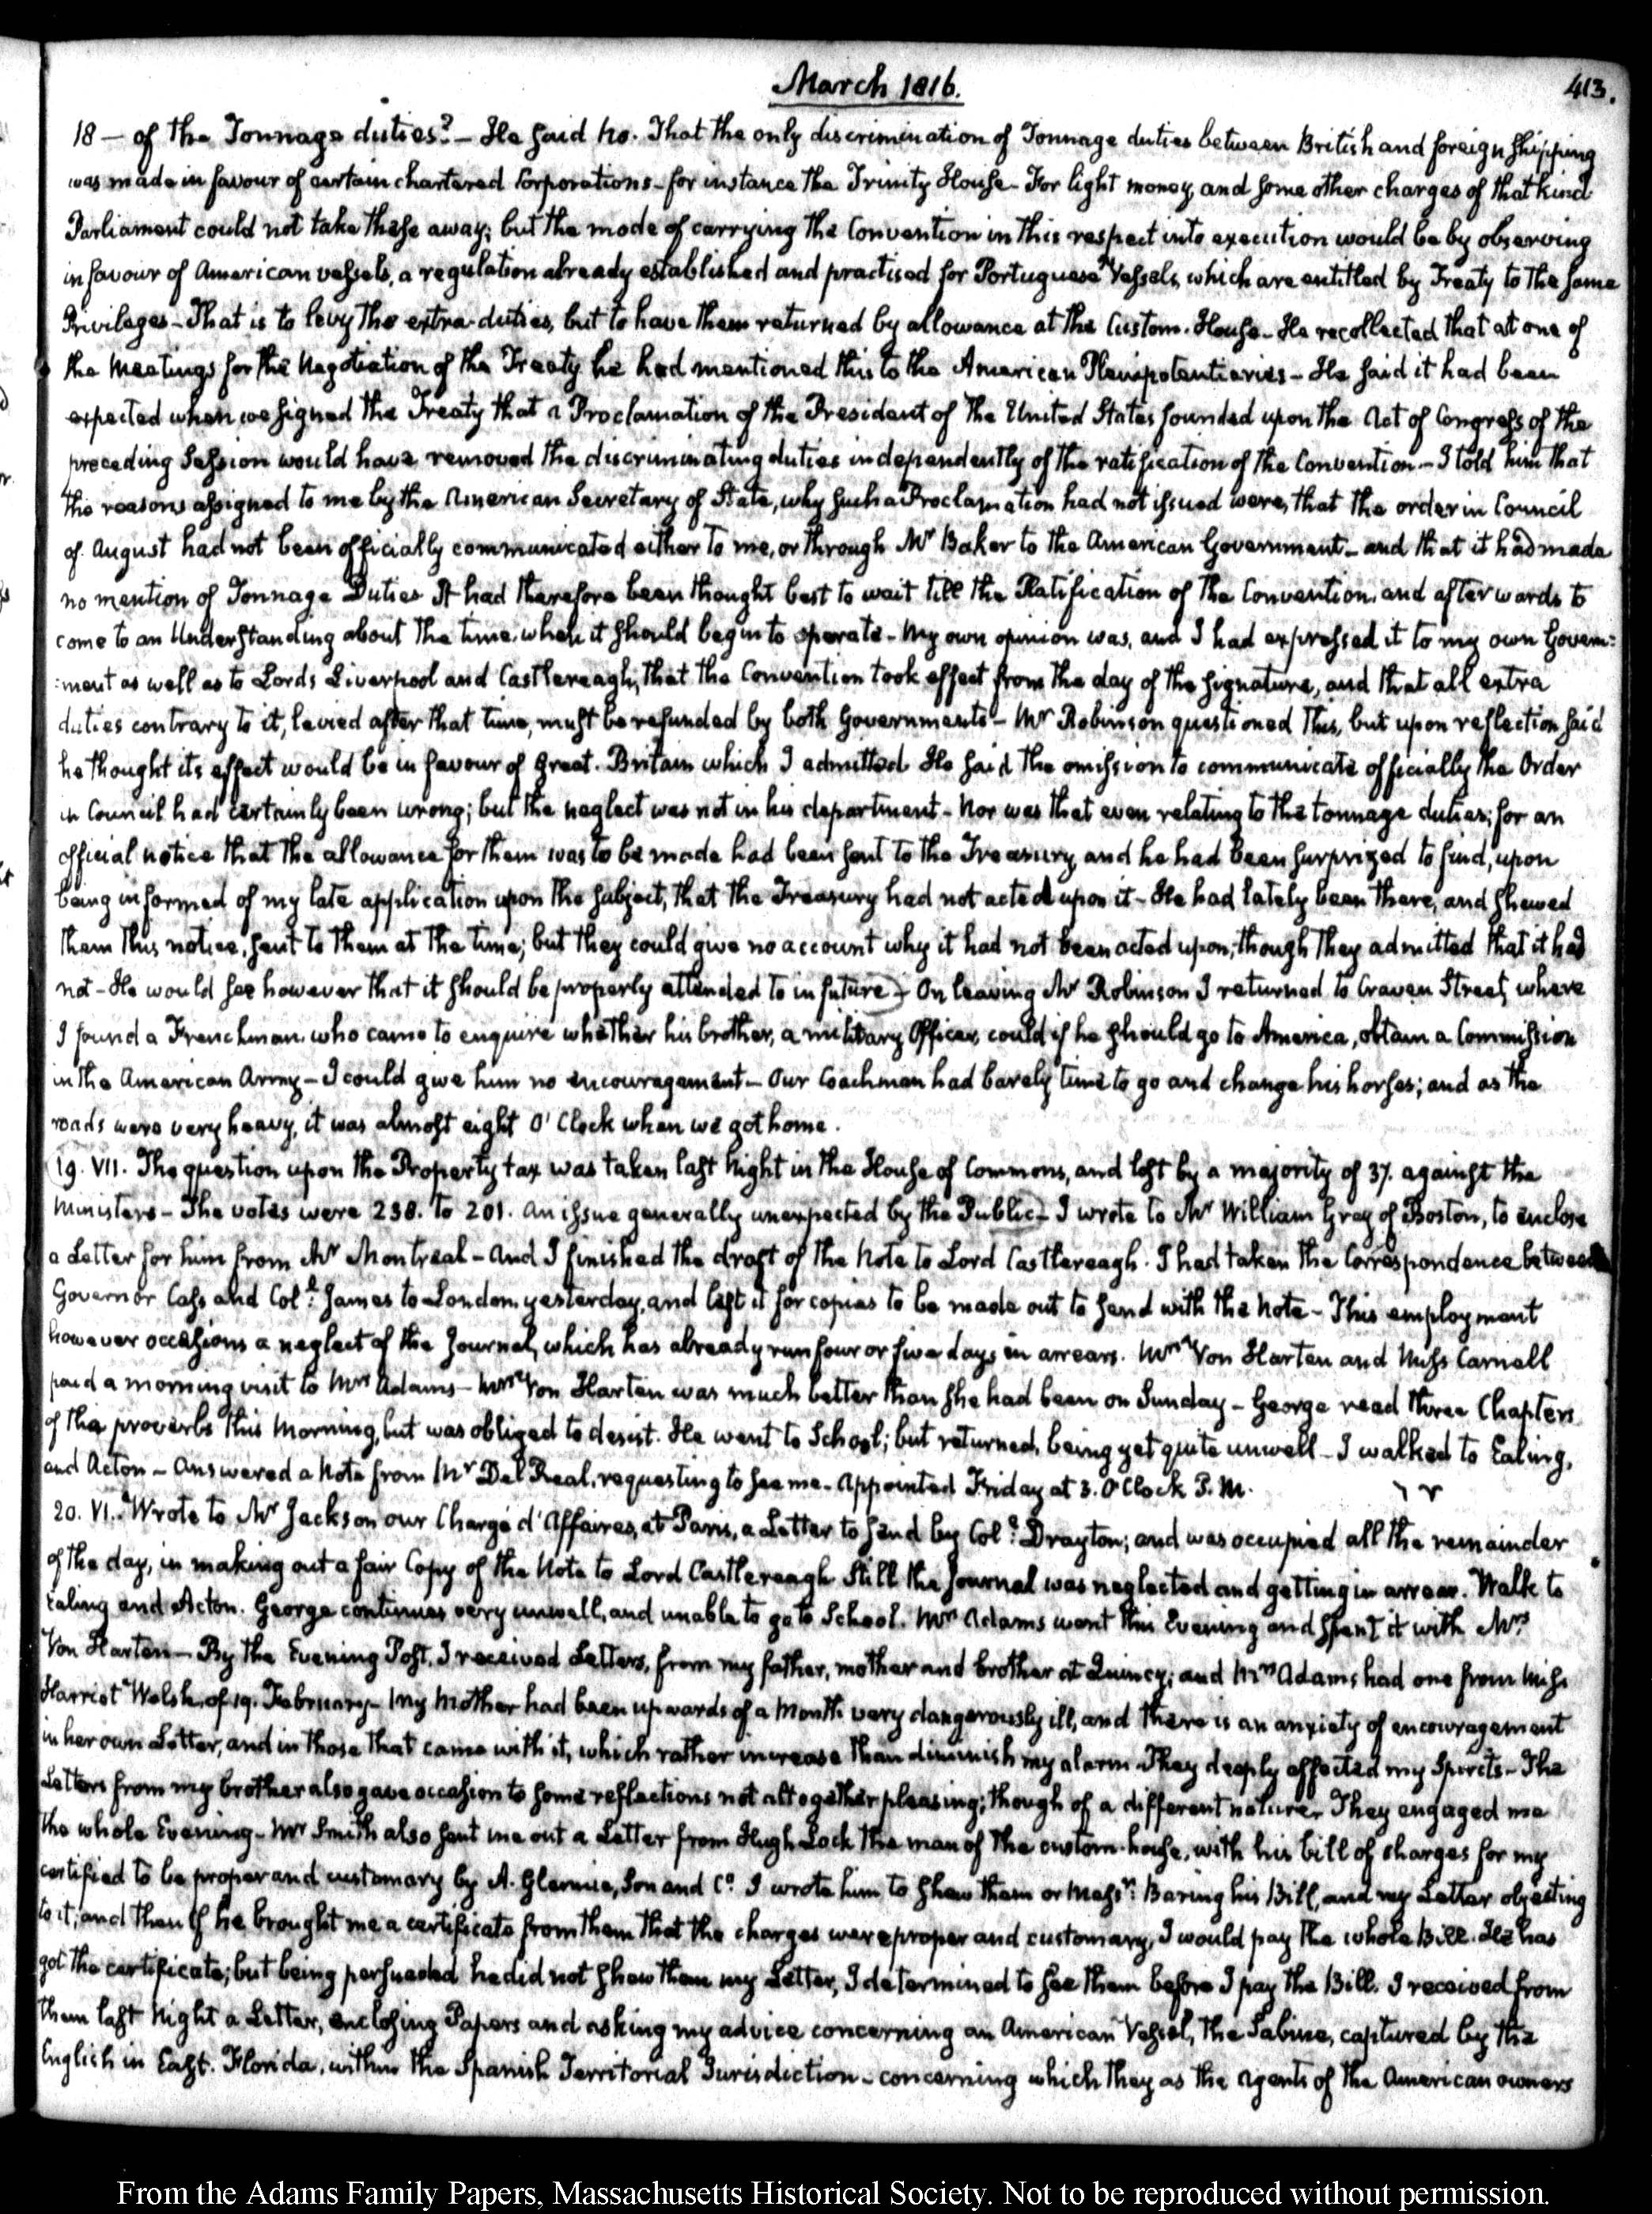 March 1816.
413.
18 — of the Tonnage duties? — He said no. That the only discrimination of Tonnage duties between British and foreign shipping
was made in favour of certain chartered Corporations — for instance the Trinity House — For light money, and some other charges of that kind
Parliament could not take these away; but the mode of carrying the Convention in this respect into execution would be by observing
in favour of American vessels, a regulation already established and practised for Portuguese Vessels, which are entitled by Treaty to the same
Privileges — That is to levy the extra-duties, but to have them returned by allowance at the Custom-House — He recollected that at one of
the Meetings for the Negotiation of the Treaty he had mentioned this to the American Plenipotentiaries — He said it had been
expected when we signed the Treaty that a Proclamation of the President of the United States founded upon the Act of Congress of the
preceding Session would have removed the discriminating duties independently of the ratification of the Convention — I told him that
the reasons assigned to me by the American Secretary of State, why such a Proclamation had not issued were, that the order in Council
of August had not been officially communicated either to me, or through Mr Baker to the American Government — and that it had made
no mention of Tonnage Duties It had therefore been thought best to wait till the Ratification of the Convention, and afterwards to
come to an Understanding about the time, when it should begin to operate — My own opinion was, and I had expressed it to my own Govern:
:ment as well as to Lords Liverpool and Castlereagh, that the Convention took effect from the day of the signature, and that all extra
duties contrary to it, levied after that time, must be refunded by both Governments — Mr Robinson questioned this, but upon reflection said
he thought its effect would be in favour of Great-Britain which I admitted He said the omission to communicate officially the Order
in Council had certainly been wrong; but the neglect was not in his department — Nor was that even relating to the tonnage duties; for an
official notice that the allowance for them was to be made had been sent to the Treasury, and he had been surprized to find, upon
being informed of my late application upon the subject, that the Treasury had not acted upon it — He had lately been there, and shewed
them this notice, sent to them at the time; but they could give no account why it had not been acted upon; though they admitted that it had
not — He would see however that it should be properly attended to in future — On leaving Mr Robinson I returned to Craven Street, where
I found a Frenchman, who came to enquire whether his brother, a military Officer, could if he should go to America, obtain a Commission
in the American Army — I could give him no encouragement — Our Coachman had barely time to go and change his horses; and as the
roads were very heavy, it was almost eight O'Clock when we got home.
19. VII. The question upon the Property tax was taken last Night in the House of Commons, and lost by a majority of 37. against the
Ministers — The votes were 238. to 201. an issue generally unexpected by the Public — I wrote to Mr William Gray of Boston, to enclose
a Letter for him from Mr Montreal — And I finished the draft of the Note to Lord Castlereagh. I had taken the Correspondence between
Governor Cass and Coll. James to London yesterday, and left it for copies to be made out to send with the Note — This employment
however occasions a neglect of the Journal, which has already run four or five days in arrears. Mrs Von Harten and Miss Carnell
paid a morning visit to Mrs Adams — Mrs Von Harten was much better than she had been on Sunday — George read three Chapters
of the proverbs this Morning, but was obliged to desist. He went to School; but returned, being yet quite unwell — I walked to Ealing,
and Acton — Answered a Note from Mr Del Real, requesting to see me. Appointed Friday at 3. O'Clock P.M.
20. VI. Wrote to Mr Jackson our Chargé d'Affaires, at Paris, a Letter to send by Coll. Drayton; and was occupied all the remainder
of the day, in making out a fair Copy of the Note to Lord Castlereagh Still the Journal was neglected and getting in arrear. Walk to
Ealing and Acton. George continues very unwell, and unable to go to School. Mrs Adams went this Evening and spent it with Mrs
Von Harten — By the Evening Post, I received Letters, from my father, mother and brother at Quincy; and Mrs Adams had one from Miss
Harriet Welsh, of 19. February — My Mother had been upwards of a Month very dangerously ill, and there is an anxiety of encouragement
in her own Letter, and in those that came with it, which rather increase than diminish my alarm They deeply affected my Spirits — The
Letters from my brother also gave occasion to some reflections not altogether pleasing; though of a different nature. They engaged me
the whole Evening — Mr Smith also sent me out a Letter from Hugh Lock the man of the custom-house, with his bill of charges for my
certified to be proper and customary by A. Glennie, Son and Co. I wrote him to shew them or Messrs. Baring his Bill, and my Letter objecting
to it; and then if he brought me a certificate from them that the charges were proper and customary, I would pay the whole Bill. He has
got the certificate; but being persuaded he did not shew them my Letter, I determined to see them before I pay the Bill. I received from
them last Night a Letter, enclosing Papers and asking my advice concerning an American Vessel, the Sabine, captured by the
English in East-Florida, within the Spanish Territorial Jurisdiction — concerning which they as the Agents of the American owners
From the Adams Family Papers, Massachusetts Historical Society. Not to be reproduced without permission.